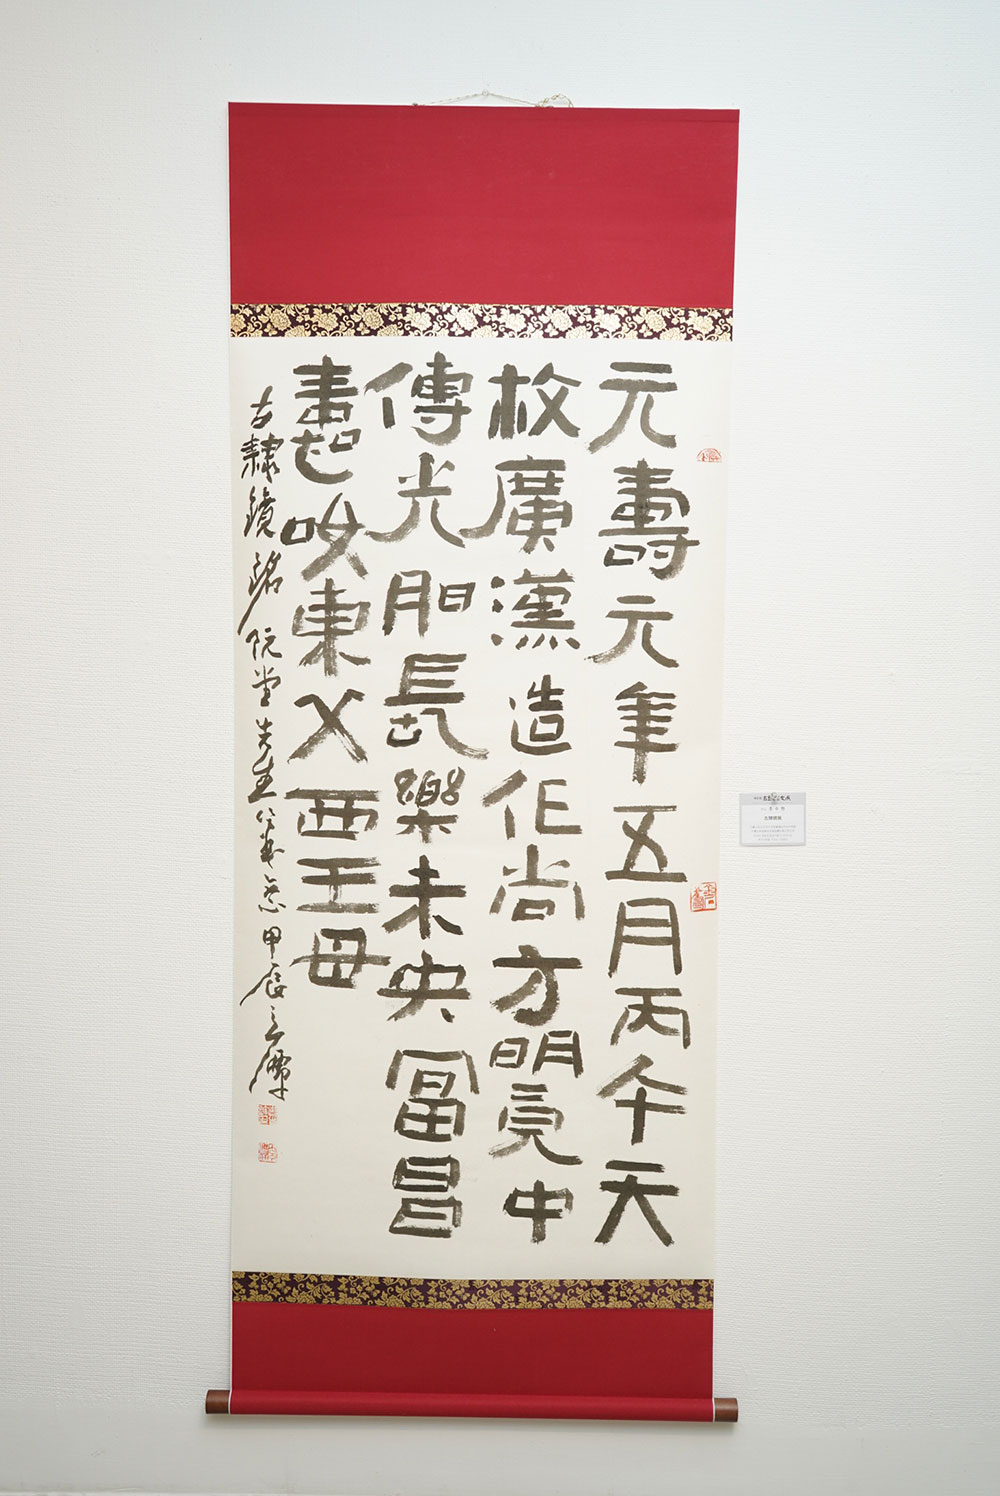 元壽元年五月丙午天
枚廣漢造作尚方明竟中
傳光明長樂未央富昌
壽如東父西王母
古隸鏡銘 阮堂先生筆意 甲辰